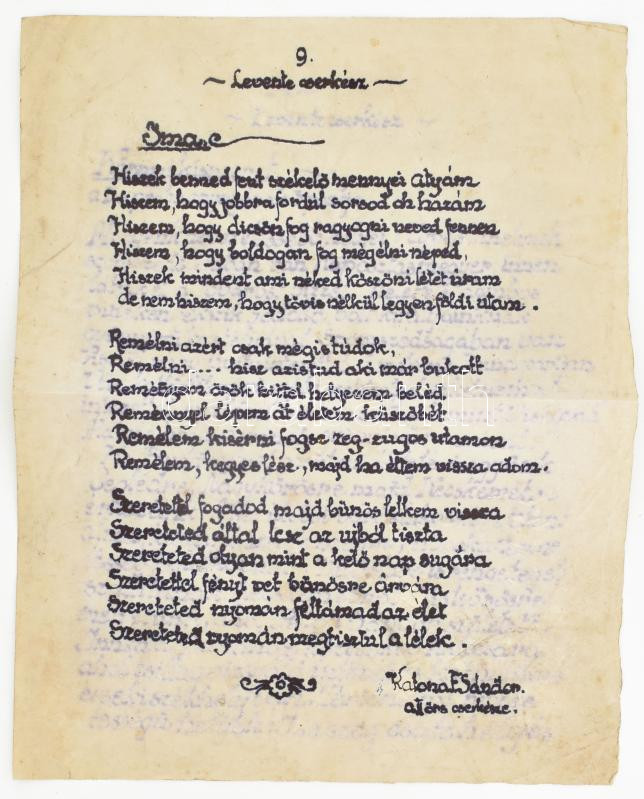 9.
~ Levente cserkész ~
Ima
Hiszek benned fent székelő mennyei atyám
Hiszem, hogy jobbra fordúl sorsod oh hazám
Hiszem, hogy dicsőn fog ragyogni neved fennen
Hiszem, hogy boldogan fog mégélni néped,
Hiszek mindent ami néked köszöni létét uram
de nem hiszem, hogy tövis nélkül legyen földi utam.
Remélni azért csak mégis túdok,
Remélni.... hisz azis tud aki már bukott
Reményem örök hittel helyezem beléd
Reménnyel lépem át életem küszöbét
Remélem kisérni fogsz zeg-zugos utamon
Remélem, kegyes lész, majd ha éltem vissza adom.
Szeretetel fogadod majd bünös lelkem vissza
Szereteted által lesz az ujból tiszta
Szereteted olyan mint a kelő nap sugára
Szeretettel fényt vet bünösre árvára
Szereteted nyomán feltámad az élet
Szereteted nyomán megtisztul a lélek.
Katona F. Sándor.
a II őrs cserkésze.